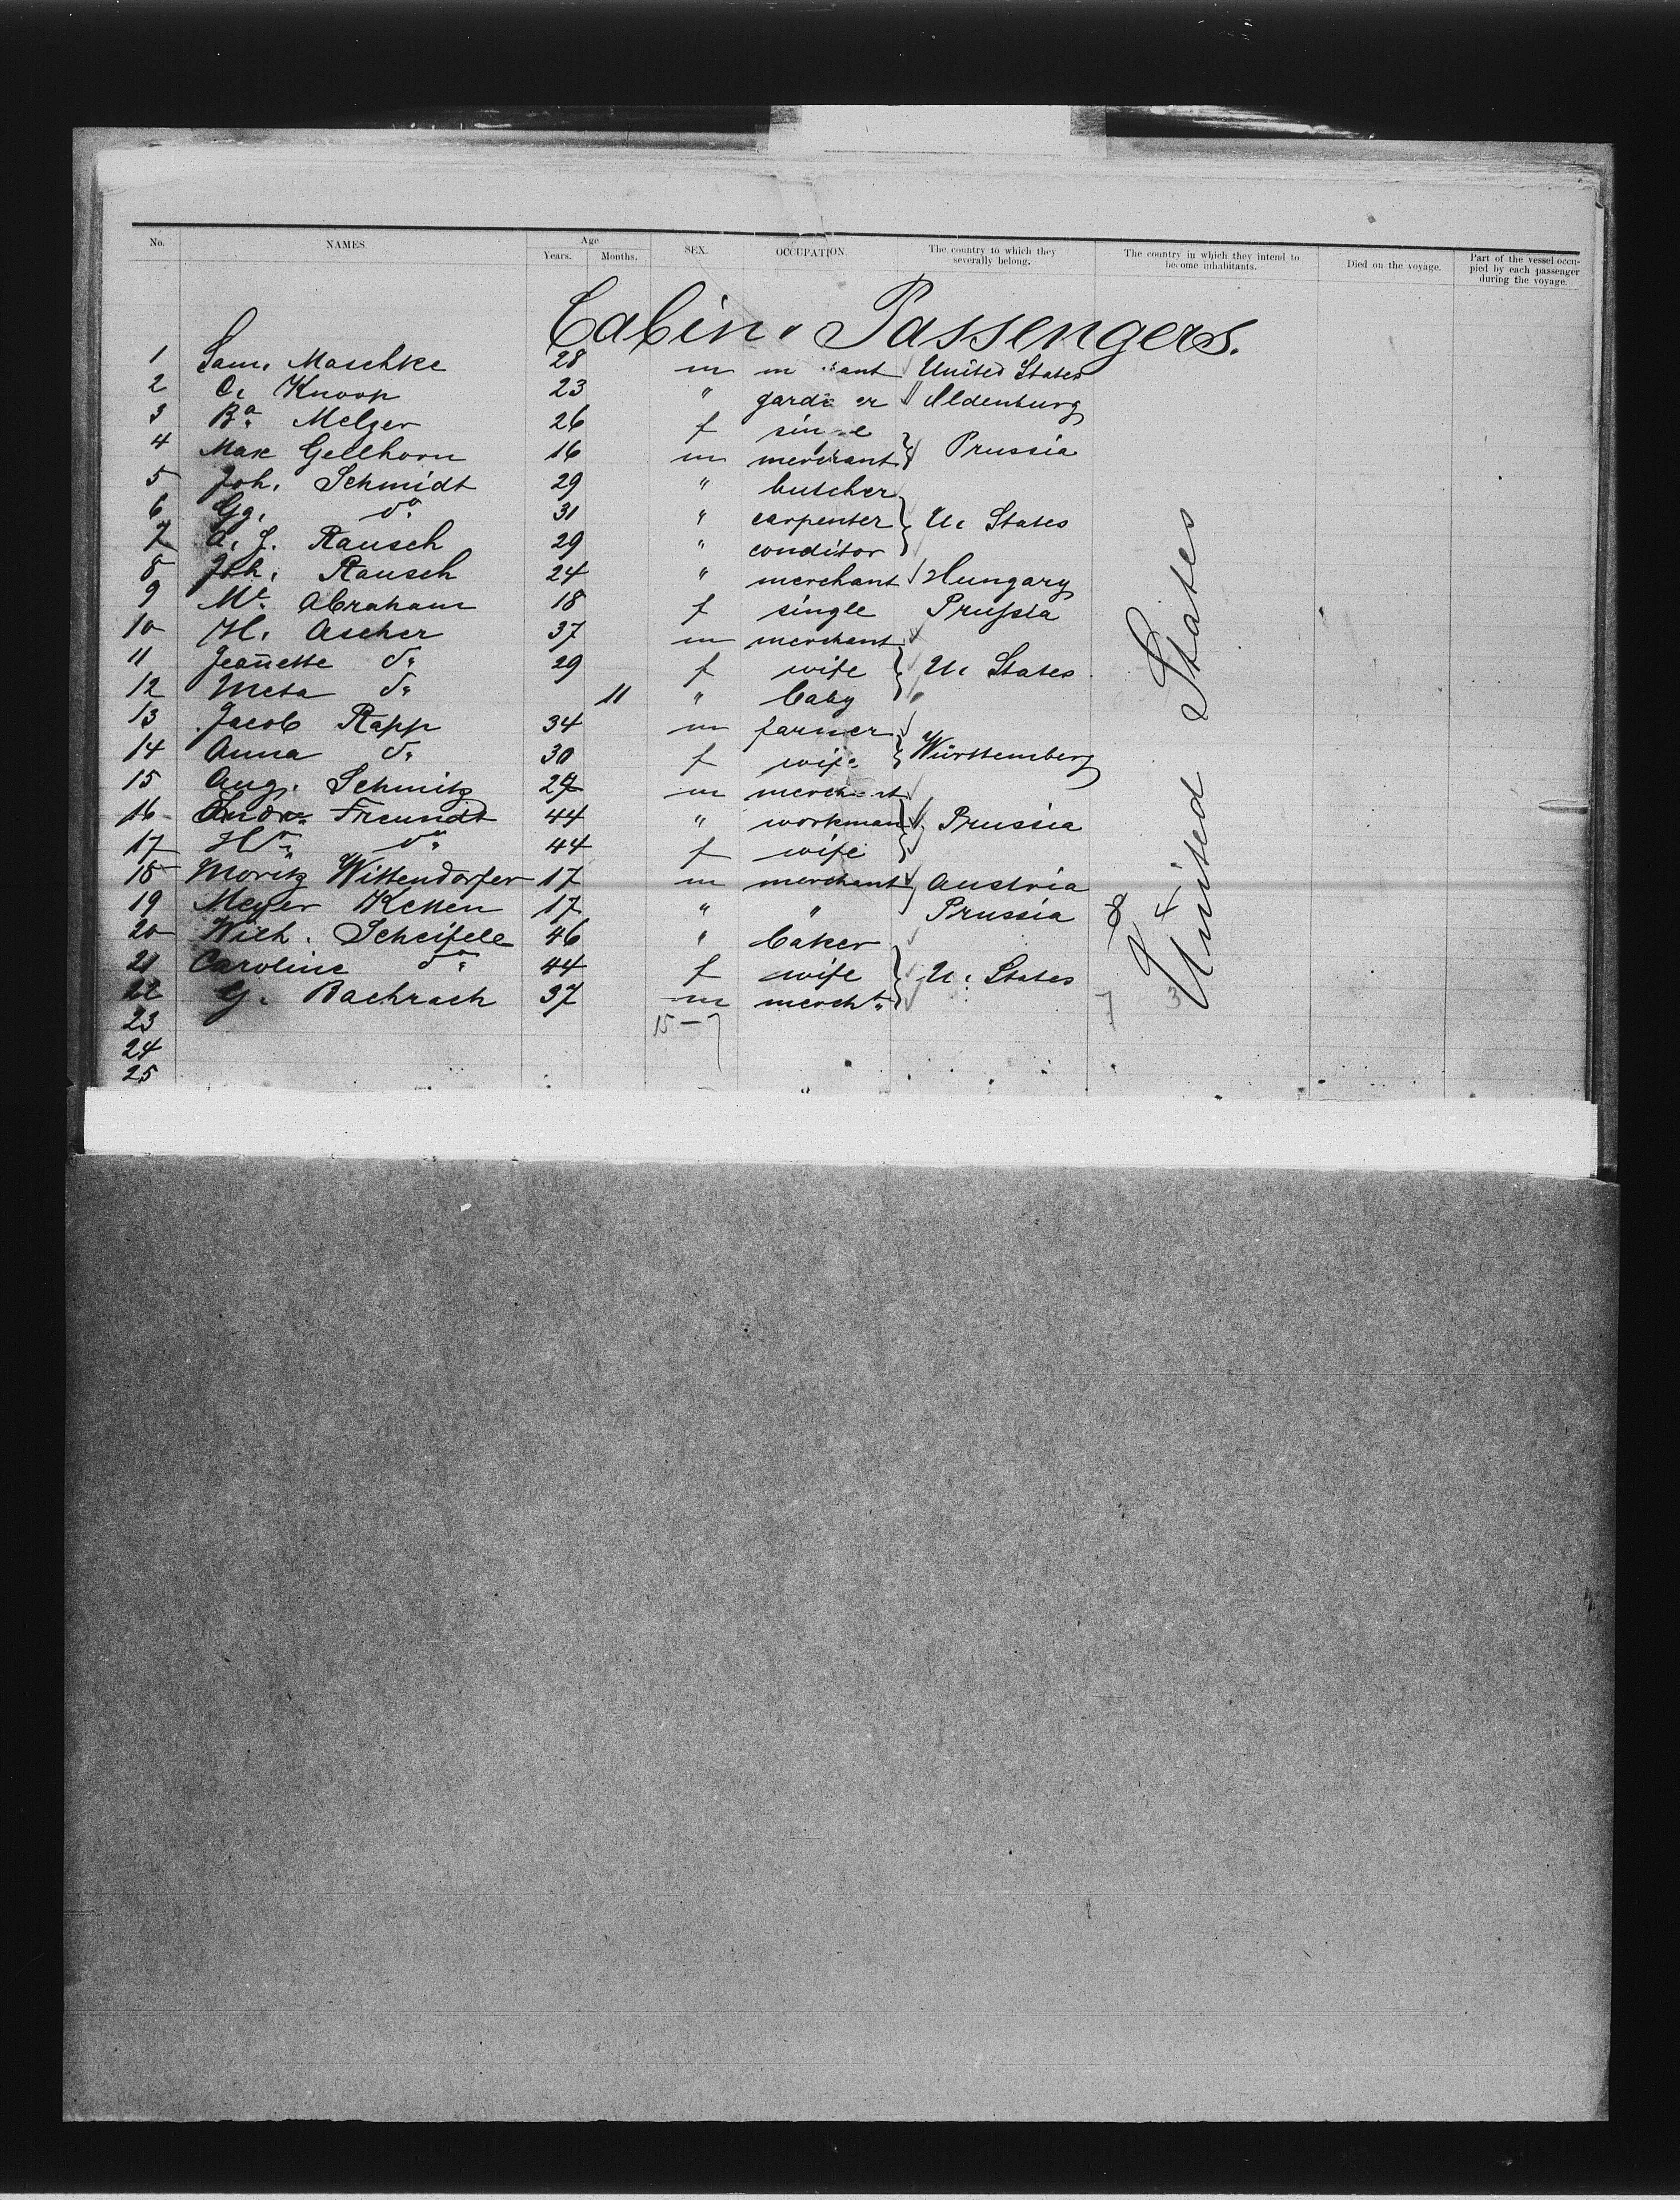 No. NAMES. Age Years. Months. SEX. OCCUPATION. The country to which they severally belong. The country in which they intend to become inhabitants. Died on the voyage. Part of the vessel occupied by each passenger during the voyage.
Cabin Passengers.
1 Sam. Maschke 28 m m ant United States
2 C. Knoop 23 " gard er Oldenburg
3 Ba. Melzer 26 f sin e
4 Max Gellhorn 16 m merchant } Prussia
5 Joh. Schmidt 29 " butcher
6 Gg. do. 31 " carpenter } U. States
7 A. J. Rausch 29 " conditor
8 Joh. Rausch 24 " merchant Hungary
9 Mt. Abraham 18 f single Prussia
10 H. Ascher 37 m merchant
11 Jeanette do. 29 f wife } U. States
12 Meta do. 11 " baby
13 Jacob Rapp 34 m farmer
14 Anna do. 30 f wife } Württemberg
15 Aug. Schmitz 27 m merchant
16 Freundt 44 " workman } Prussia
17 do. 44 f wife
18 Moritz Wittendorfer 17 m merchant Austria
19 Meyer 17 " " Prussia
20 Wilh. Scheifele 46 " baker
21 Caroline do. 44 f wife } U. States
22 G. Bachrach 37 m mercht.
23 15 – 7
24
25
United States